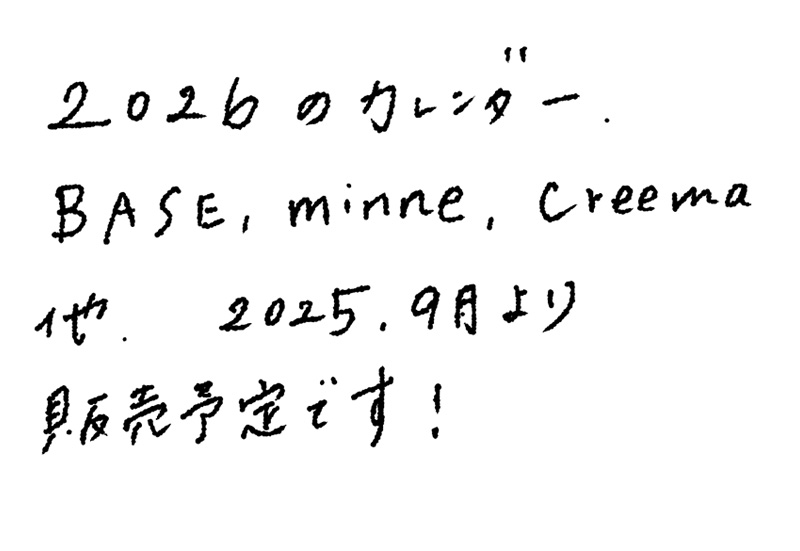 2026のカレンダー.
BASE, minne, Creema
他. 2025.9月より
販売予定です!